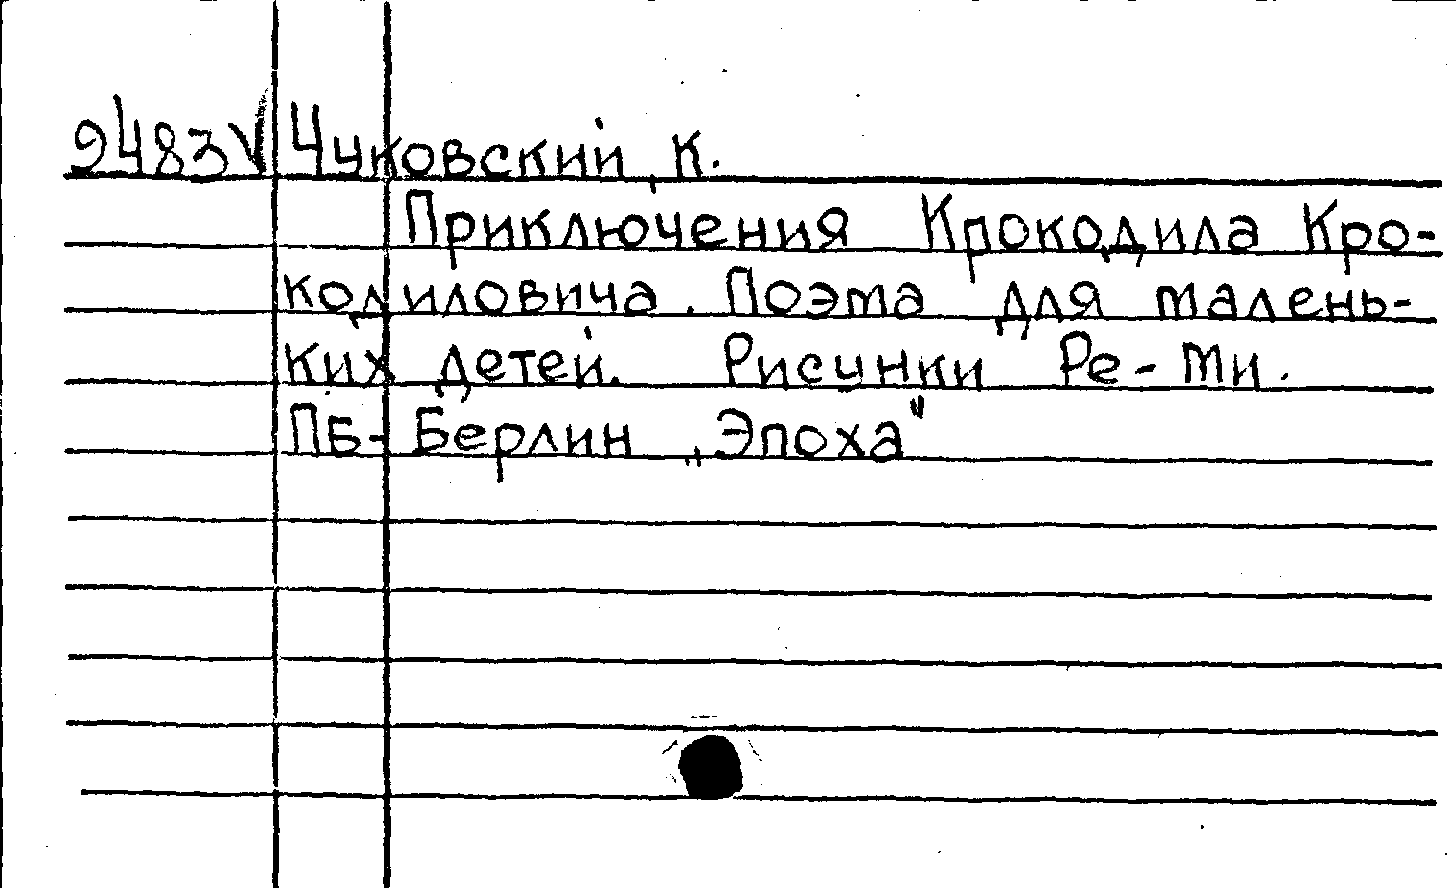 9483V Чуковский, К.
Приключения Крокодила Кро-
кодиловича. Поэма для малень-
ких детей. Рисунки Ре-Ми.
ПБ-Берлин „Эпоха"